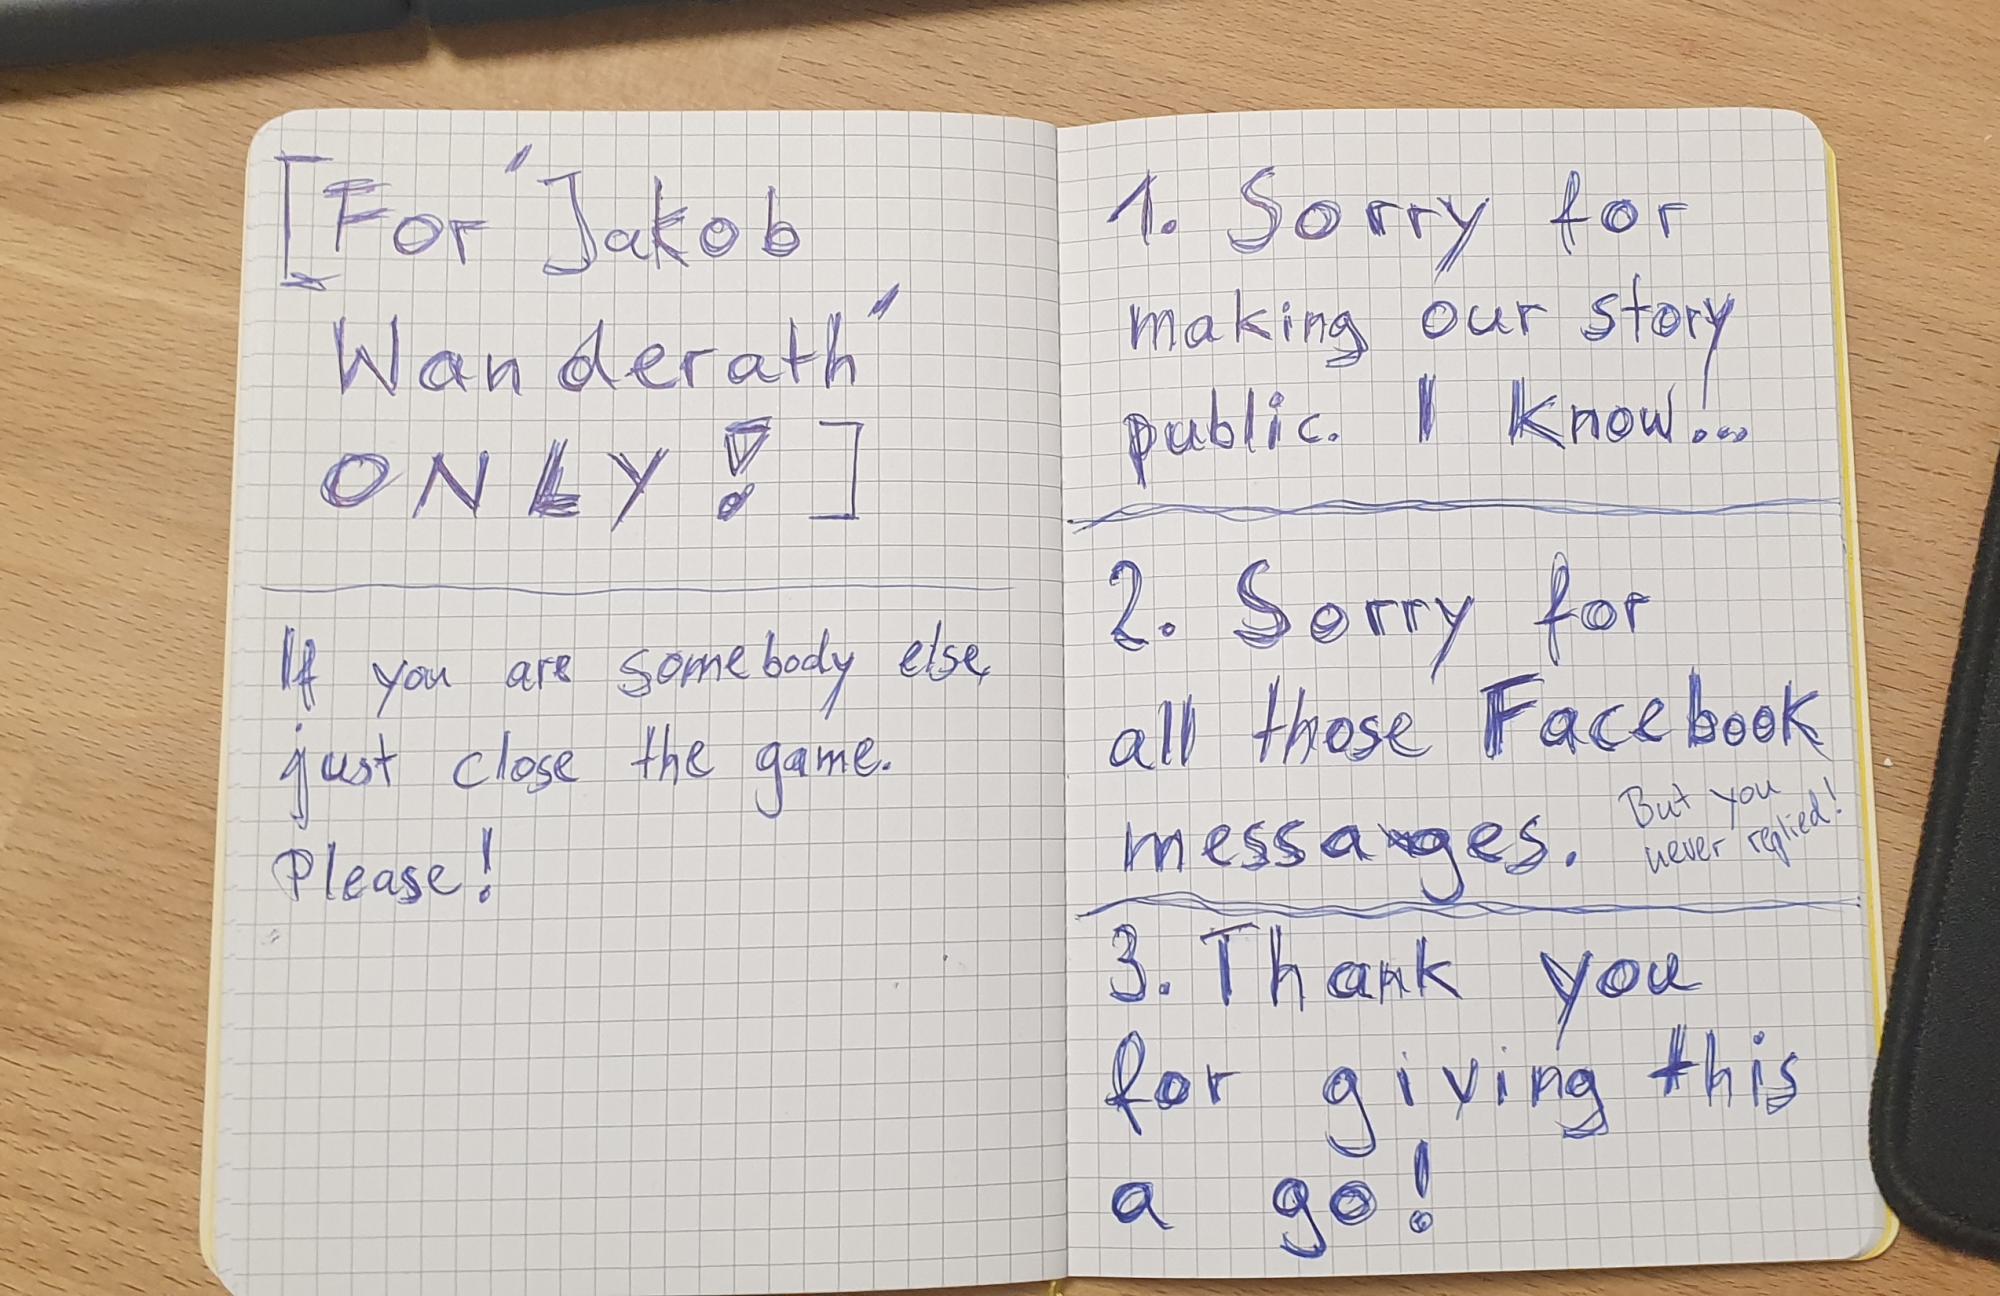 [For 'Jakob
Wanderath'
ONLY!]
If you are somebody else,
just close the game.
Please!
1. Sorry for
making our story
public. I know...
2. Sorry for
all those Facebook
messages.
But you
never replied!
3. Thank you
for giving this
a go!